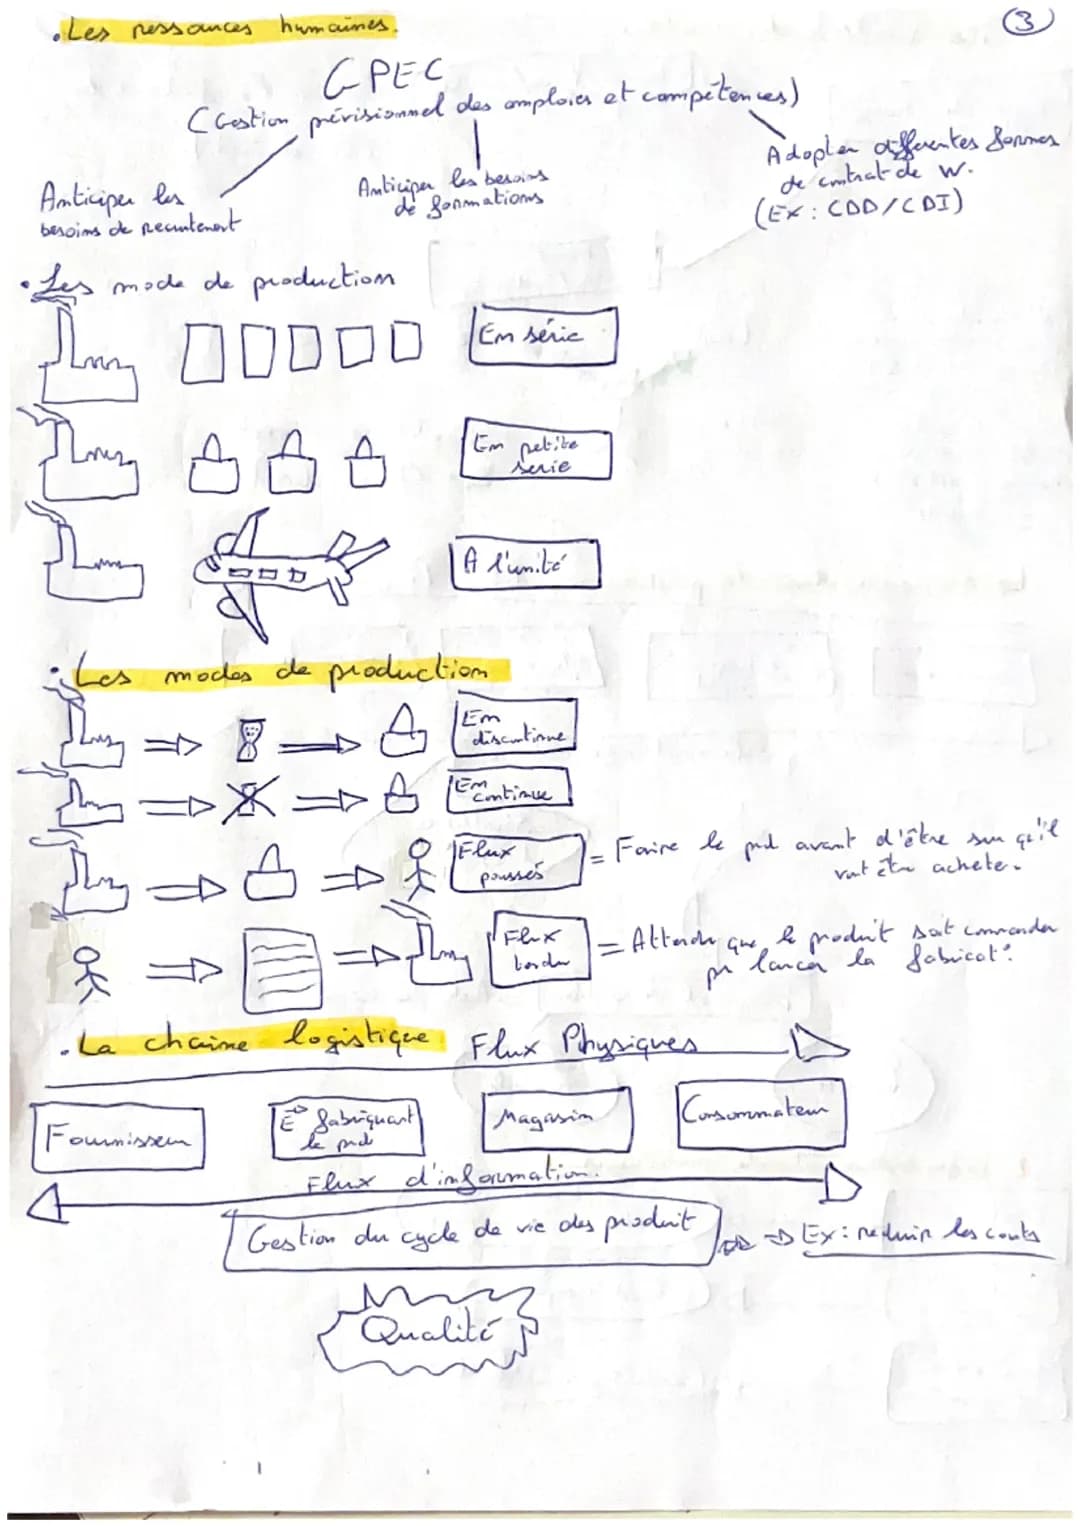 • Les ressources humaines.
3
GPEC
(Gestion prévisionnel des emploies et compétences)
Anticiper les
besoins de recrutement
Anticiper les besoins
de formations
Adopter differentes formes
de contrat de W.
(Ex : CDD/CDI)
• Les mode de production
En série
En petite
serie
A l'unité
• Les modes de production
En
discontinue
En
continue
Flux
poussés
= Faire le pdt avant d'être sur qu'il
vat être acheter.
Flux
tendu
= Attendre que le produit soit commander
pr lancer la fabricat°.
• La chaine logistique
Flux Physiques
Fournisseur
E^se fabriquant
le pdt
Magasin
Consommateur
Flux d'information.
Gestion du cycle de vie des produit
Ex : reduir les couts
Qualité